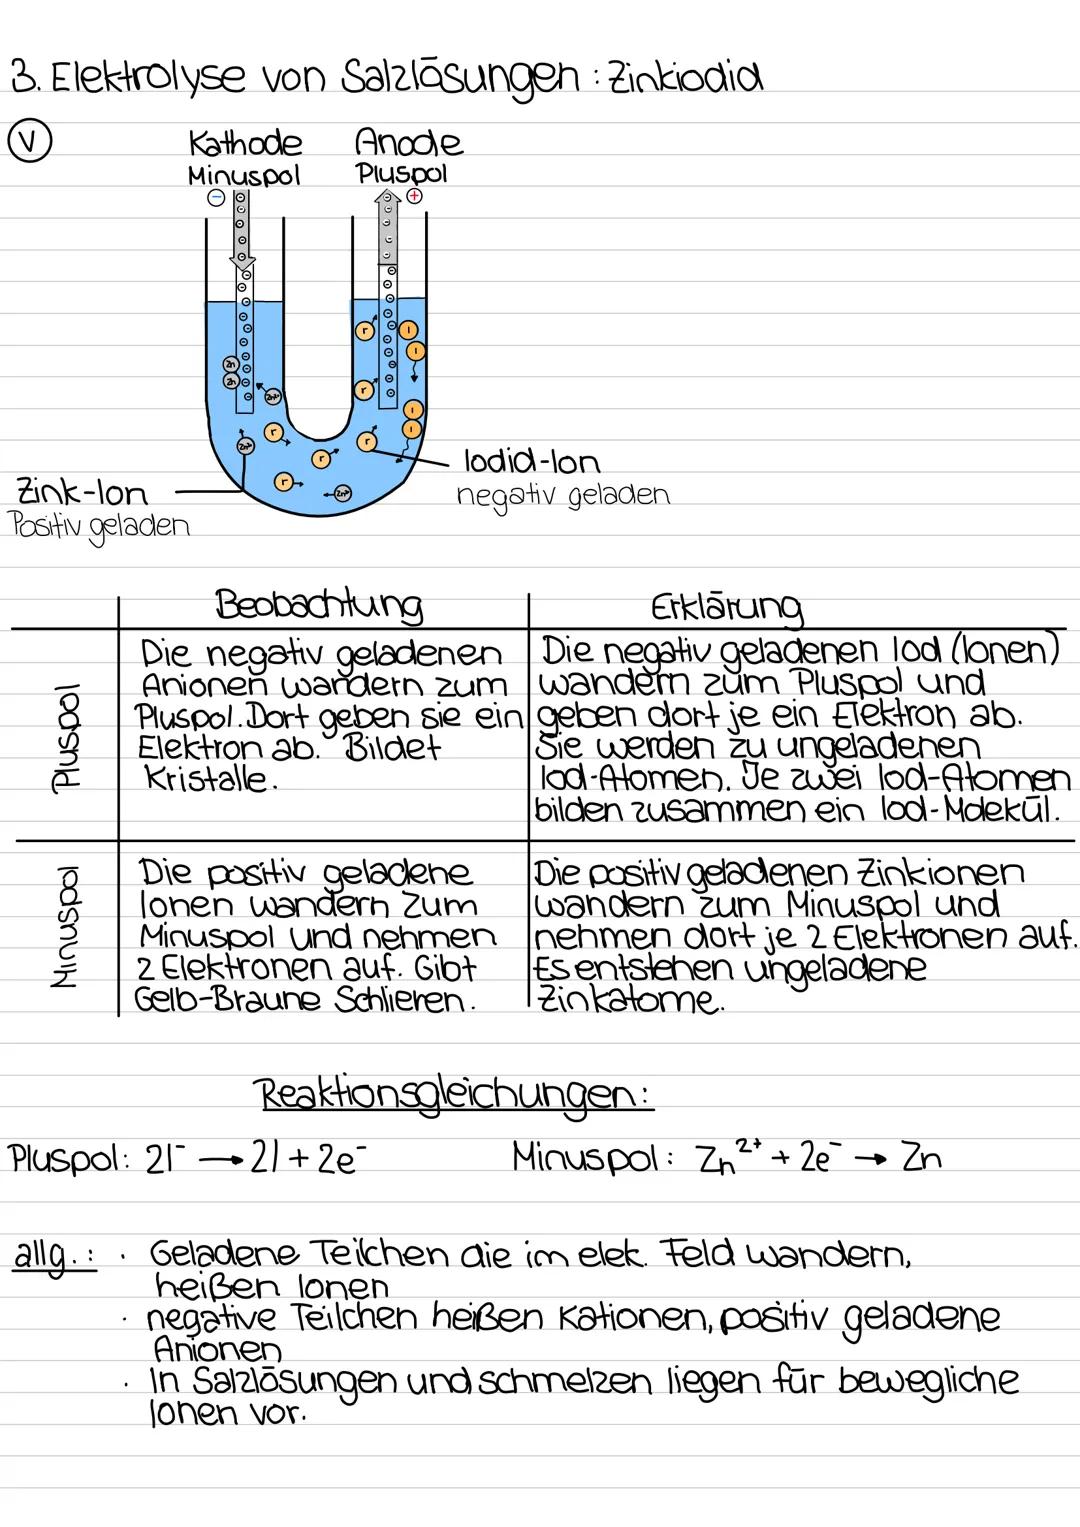 3. Elektrolyse von Salzlösungen: Zinkiodid
V
Kathode Anode
Minuspol Pluspol
Zn
Zn
Zn²⁺
Zn²⁺
Zn²⁺
I⁻
I⁻
I⁻
I⁻
I⁻
I⁻
I
I
I
I
Iodid-Ion
negativ geladen
Zink-Ion
Positiv geladen
Beobachtung
Erklärung
Pluspol
Die negativ geladenen
Anionen wandern zum
Pluspol. Dort geben sie ein
Elektron ab. Bildet
Kristalle.
Die negativ geladenen Iod (Ionen)
wandern zum Pluspol und
geben dort je ein Elektron ab.
Sie werden zu ungeladenen
Iod-Atomen. Je zwei Iod-Atomen
bilden zusammen ein Iod-Molekül.
Minuspol
Die positiv geladene
Ionen wandern zum
Minuspol und nehmen
2 Elektronen auf. Gibt
Gelb-Braune Schlieren.
Die positiv geladenen Zinkionen
wandern zum Minuspol und
nehmen dort je 2 Elektronen auf.
Es entstehen ungeladene
Zinkatome.
Reaktionsgleichungen:
Pluspol: 2I⁻ → 2I + 2e⁻ Minuspol: Zn²⁺ + 2e⁻ → Zn
allg.: · Geladene Teilchen die im elek. Feld wandern,
heißen Ionen
· negative Teilchen heißen Kationen, positiv geladene
Anionen
· In Salzlösungen und schmelzen liegen für bewegliche
Ionen vor.